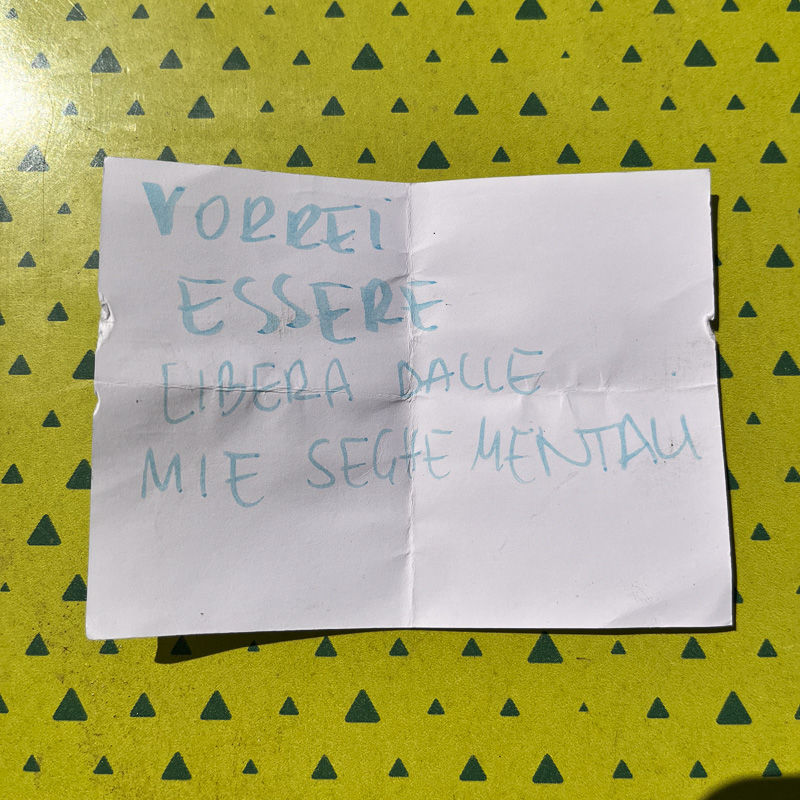 VORREI
ESSERE
LIBERA DALLE
MIE SEGHE MENTALI